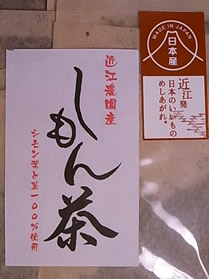 近江農園産
しもん茶
シモン葉と茎一〇〇%使用
MADE IN JAPAN
日本産
近江発
日本のいいもの
めしあがれ。